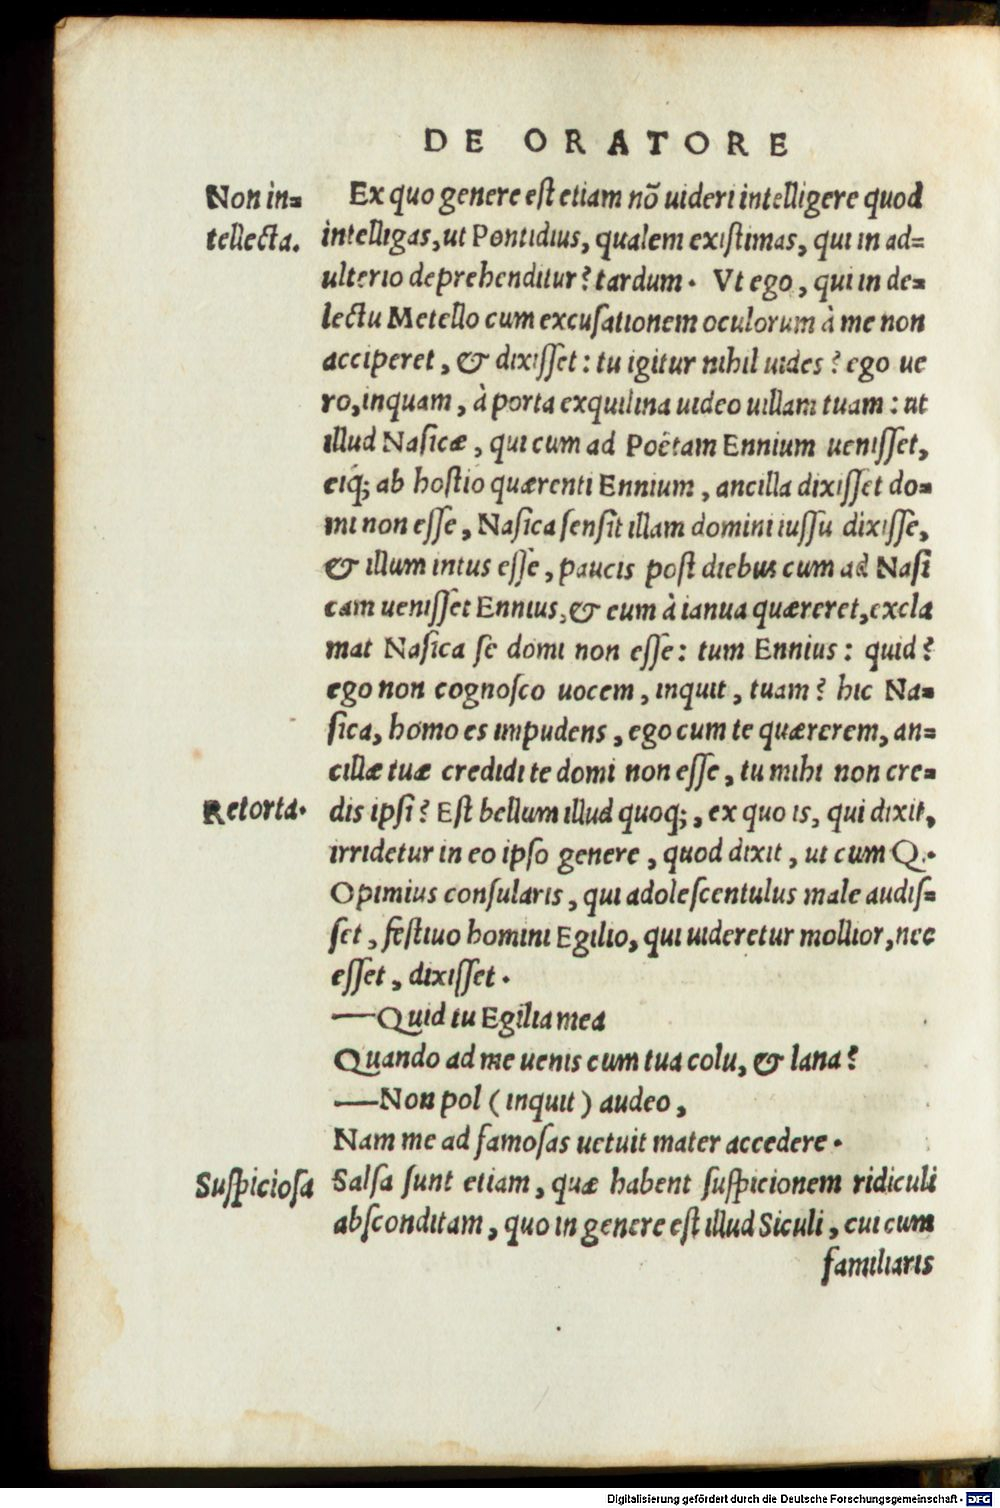 DE ORATORE
Non in=
tellecta.
Ex quo genere est etiam nō uideri intelligere quod
intelligas, ut Pontidius, qualem existimas, qui in ad=
ulterio deprehenditur? tardum. Vt ego, qui in de=
lectu Metello cum excusationem oculorum à me non
acciperet, & dixisset: tu igitur nihil uides? ego ue
ro, inquam, à porta exquilina uideo uillam tuam: ut
illud Nasicæ, qui cum ad Poëtam Ennium uenisset,
eiq́; ab hostio quærenti Ennium, ancilla dixisset do=
mi non esse, Nasica sensit illam domini iussu dixisse,
& illum intus esse, paucis post diebus cum ad Nasi
cam uenisset Ennius, & eum à ianua quæreret, excla
mat Nasica se domi non esse: tum Ennius: quid?
ego non cognosco uocem, inquit, tuam? hic Na=
sica, homo es impudens, ego cum te quærerem, an=
cillæ tuæ credidi te domi non esse, tu mihi non cre=
Retorta.
dis ipsi? Est bellum illud quoq;, ex quo is, qui dixit,
irridetur in eo ipso genere, quod dixit, ut cum Q.
Opimius consularis, qui adolescentulus male audis=
set, festiuo homini Egilio, qui uideretur mollior, nec
esset, dixisset.
—Quid tu Egilia mea
Quando ad me uenis cum tua colu, & lana?
—Non pol (inquit) audeo,
Nam me ad famosas uetuit mater accedere.
Suspiciosa
Salsa sunt etiam, quæ habent suspicionem ridiculi
absconditam, quo in genere est illud Siculi, cui cum
familiaris
Digitalisierung gefördert durch die Deutsche Forschungsgemeinschaft - DFG